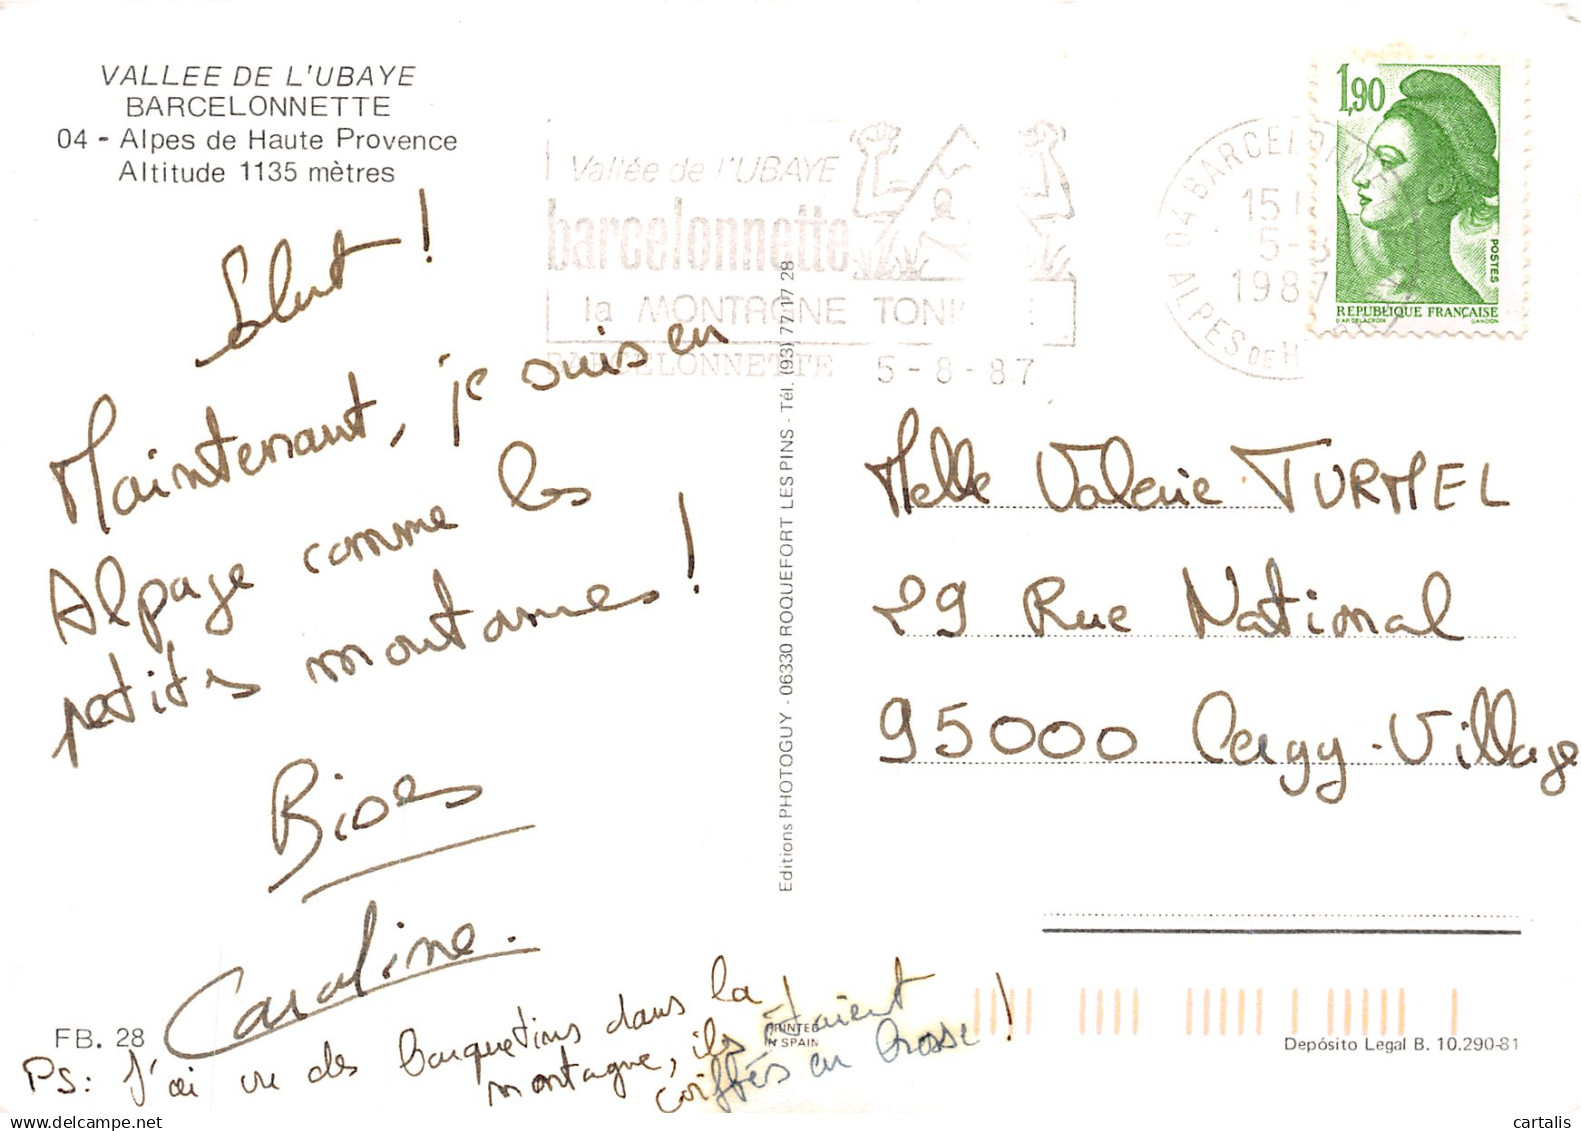 VALLEE DE L'UBAYE
BARCELONNETTE
04 - Alpes de Haute Provence
Altitude 1135 mètres
Vallée de l'UBAYE
barcelonnette
la MONTAGNE
BARCELONNETTE 5-8-87
04 BARCELONNE
15
5-8
1987
ALPES DE H
1,90
POSTES
REPUBLIQUE FRANÇAISE
D'AP. DELACROIX GANDON
Salut !
Maintenant, je suis en
Alpage comme les
petites montames !
Bises
Caroline.
PS: J'ai vu des bouquetins dans la
montagne, ils étaient
coiffés en brosse !
Editions PHOTOGUY - 06330 ROQUEFORT LES PINS - Tél. (93) 77 17 28
Melle Valerie TURMEL
29 Rue National
95000 Cergy-Village
FB. 28
PRINTED
IN SPAIN
Depósito Legal B. 10.290-81
cartalis
www.delcampe.net